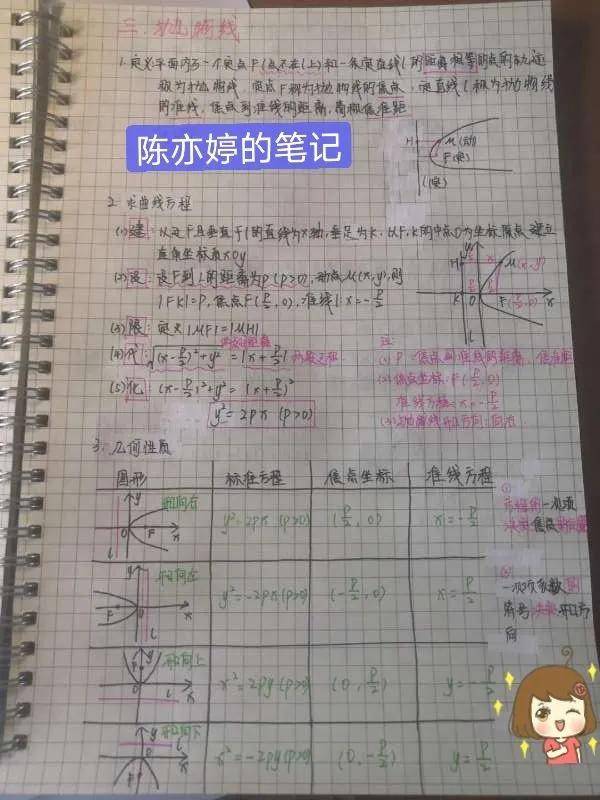 三. 抛物线
1. 定义: 平面内与一个定点F(点不在l上)和一条定直线l的距离相等的点的轨迹
称为抛物线, 定点F称为抛物线的焦点, 定直线l称为抛物线
的准线, 焦点到准线的距离, 简称焦准距
陈亦婷的笔记
H
M(动)
F(定)
l(定)
2. 求曲线方程
(1)建: 以过F且垂直于l的直线为x轴, 垂足为K, 以F,K的中点O为坐标原点建立
直角坐标系xOy
(2)设: 设F到l的距离为p(p>0), 动点M(x,y), 则
|FK|=p, 焦点F(p/2,0), 准线l: x=-p/2
y
H
M(x,y)
K
O
F(p/2,0)
x
l
(3)限: 定义|MF|=|MH|
(4)代: √(x-p/2)²+y² = |x+p/2|
(5)化: (x-p/2)²+y² = (x+p/2)²
y²=2px (p>0)
注:
(1) P: 焦点到准线的距离,
(2)焦点坐标: F(p/2,0)
准线方程: x=-p/2
(3)抛物线开口方向: 向右
3. 几何性质
图形 标准方程 焦点坐标 准线方程
开口向右 y²=2px(p>0) (p/2,0) x=-p/2
开口向左 y²=-2px(p>0) (-p/2,0) x=p/2
开口向上 x²=2py(p>0) (0,p/2) y=-p/2
开口向下 x²=-2py(p>0) (0,-p/2) y=p/2
①
一次项
决定焦点
②
一次项系数的
符号决定开口方
向